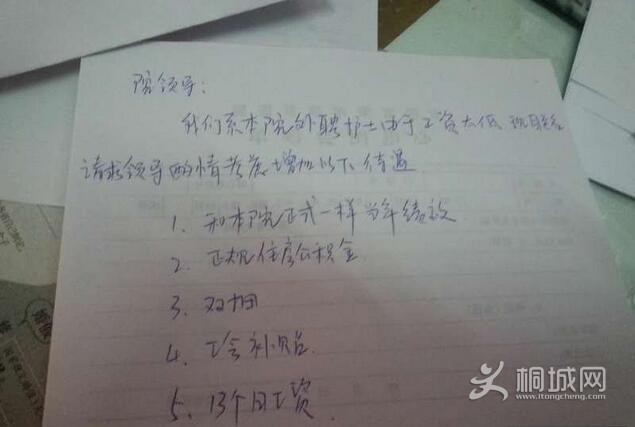 院领导:
我们系本院外聘护士由于工资太低 现联名
请求领导酌情考虑增加以下待遇
1. 和本院正式一样当年绩效
2. 正规住房公积金
3. 双
4. 工会补贴.
5. 13个月工资
桐城网
www.itongcheng.com